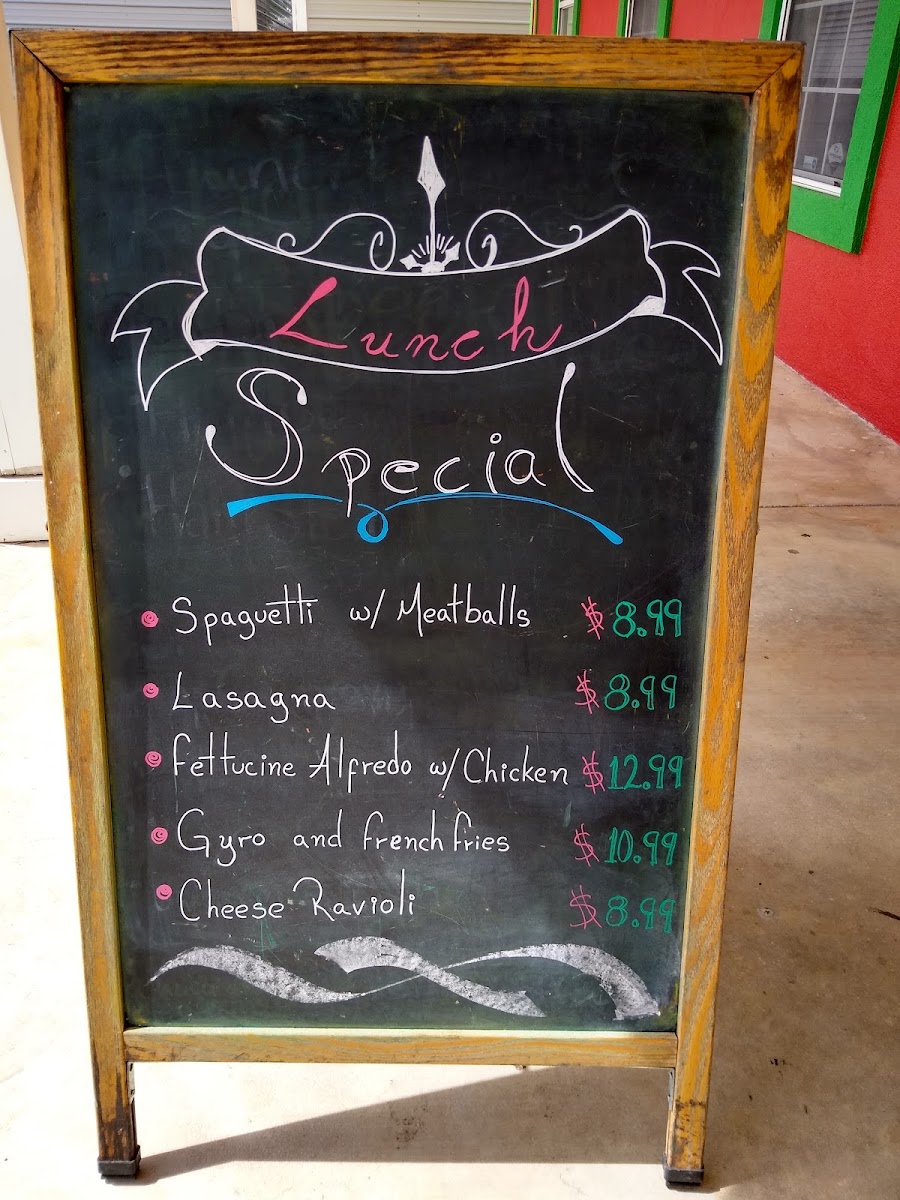 Lunch
Special
Spaguetti w/ Meatballs $8.99
Lasagna $8.99
Fettucine Alfredo w/ Chicken $12.99
Gyro and french fries $10.99
Cheese Ravioli $8.99